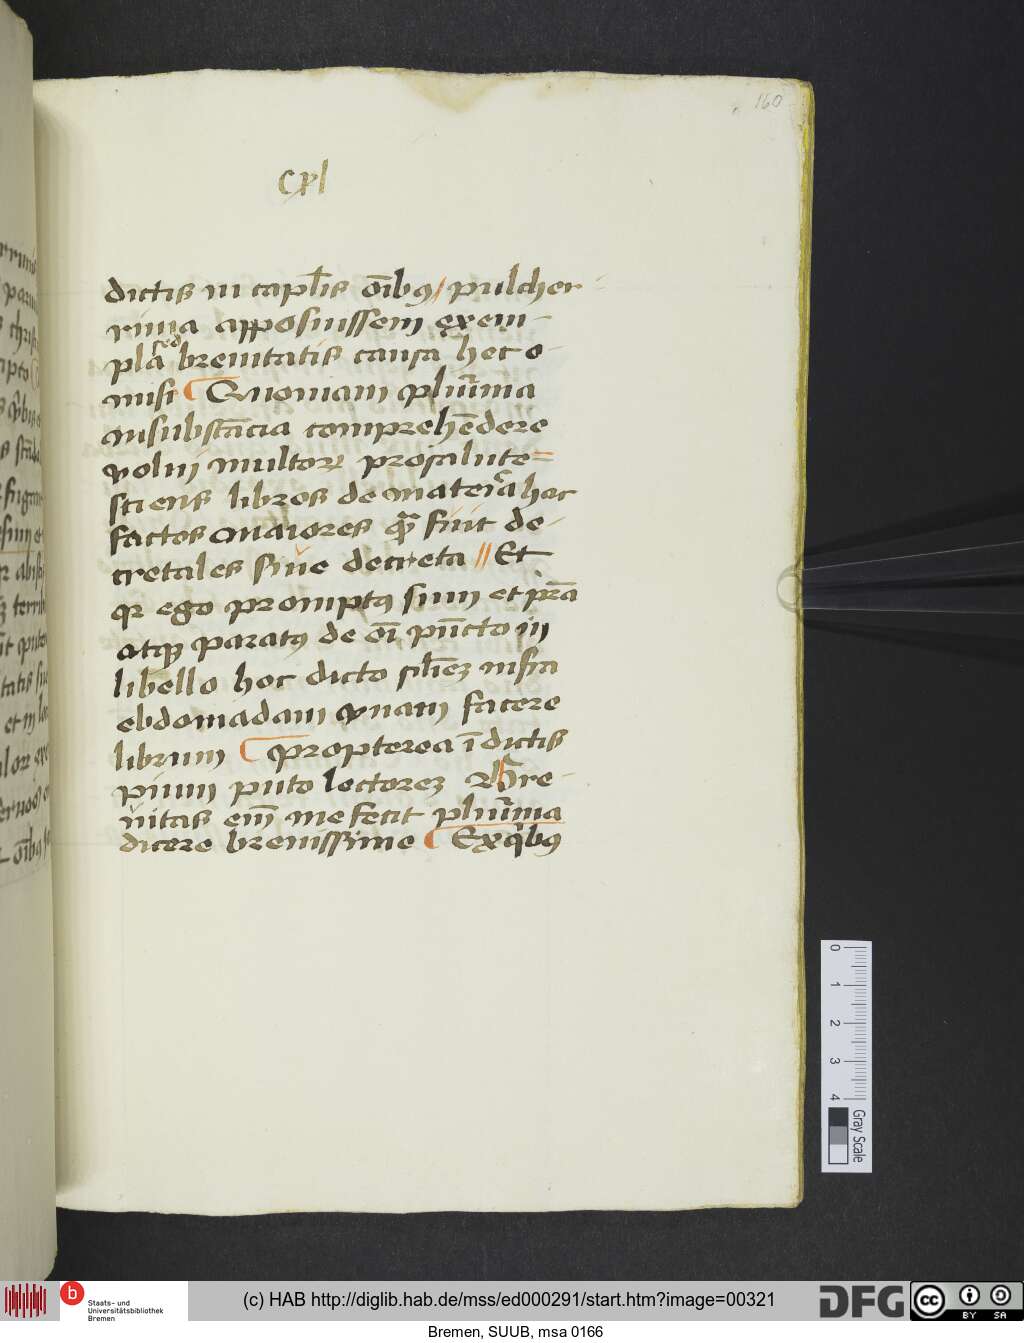 160
cxl
dictis in capl̅is oībꝯ / pulcher
rima apposuissem exem-
pla sed breuitatis causa hec o-
misi Quoniam plurīma
in substācia comprehēdere
volui multorꝝ pro salute=
sciens libros de materia hac
factos maiores quā sint de-
cretales siue decreta // Et
ego promptꝯ sum et
atqꝫ paratꝯ de oī pūcto in
libello hoc dicto infra
ebdomadam vnam facere
librum propterea ī dictis
pium puto lectorem Bre-
uitas em̄ me fecit plurīma
dicere breuissime Ex qͥbꝯ
0 1 2 3 4
Gray Scale
b Staats- und
Universitätsbibliothek
Bremen
(c) HAB http://diglib.hab.de/mss/ed000291/start.htm?image=00321
DFG
cc BY SA
Bremen, SUUB, msa 0166